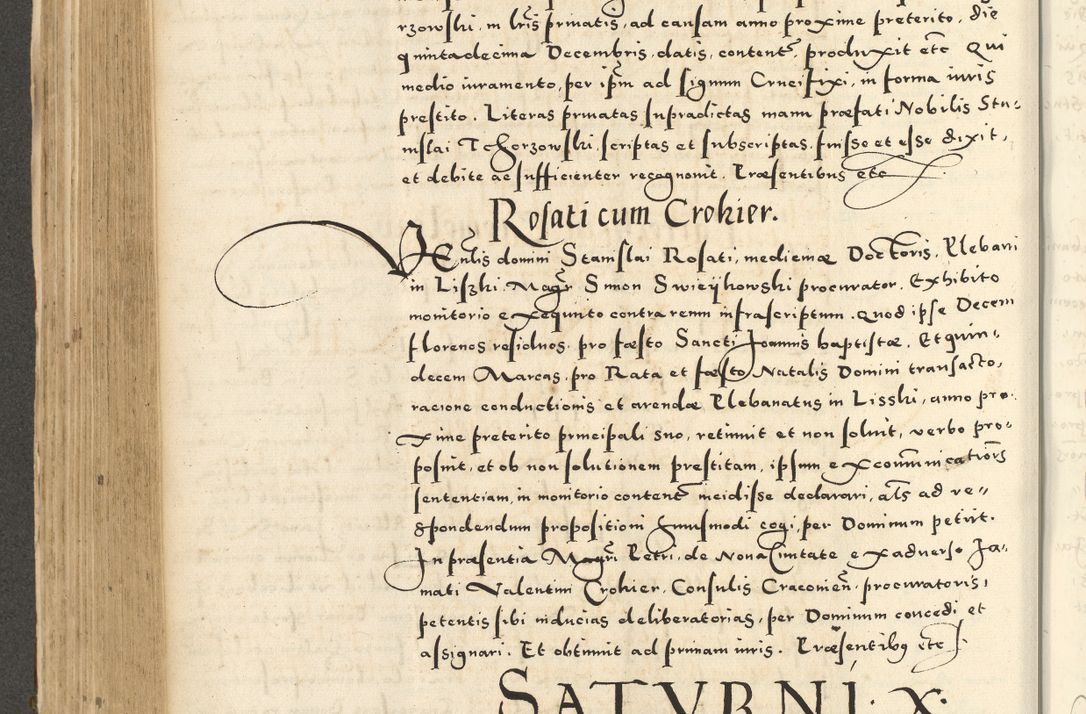 rzowski, in l̃ris priuatis, ad causam anno proxime preterito, die
quintadecima Decembris, datis, content̃, produxit etc̃ Qui
medio iuramento, per ip̃m ad signum Crucifixi, in forma iuris
prestito. Literas priuatas supradictas manu præfati Nobilis Sta-
nislai Tchorzowski, scriptas et subscriptas, fuisse et esse dixit,
et debite ac sufficienter recognouit. Præsentibus etc̃
Rosati cum Crokier.
domini Stanislai Rosati, medicinæ Doctoris, Plebani
in Liszki, Mag̃r Simon Swieykowski procurator. Exhibito
monitorio exequuto contra reum infrascriptum. Quod ipse Decem
florenos residuos, pro fæsto Sancti Joannis baptistæ, Et quin-
decem Marcas, pro Rata et fæsto Natalis Domini transacto,
racione conductionis et arendæ Plebanatus in Lisski, anno pro-
xime preterito principali suo, retinuit et non soluit, verbo pro-
posuit, et ob non solutionem prestitam, ipsum excommunicationis
sententiam, in monitorio content̃ incidisse declarari, al̃s ad re-
spondendum propositioni huiusmodi cogi, per Dominum petiit.
In præsentia Mag̃ri Petri, de Noua Ciuitate ex aduerso Fa-
mati Valentini Crokier, Consulis Cracouien̄, procuratoris,
petentis sibi inducias deliberatorias, per Dominum concedi et
assignari. Et obtinuit ad primam iuris. Præsentibus etc̃
SATVRNI. X.